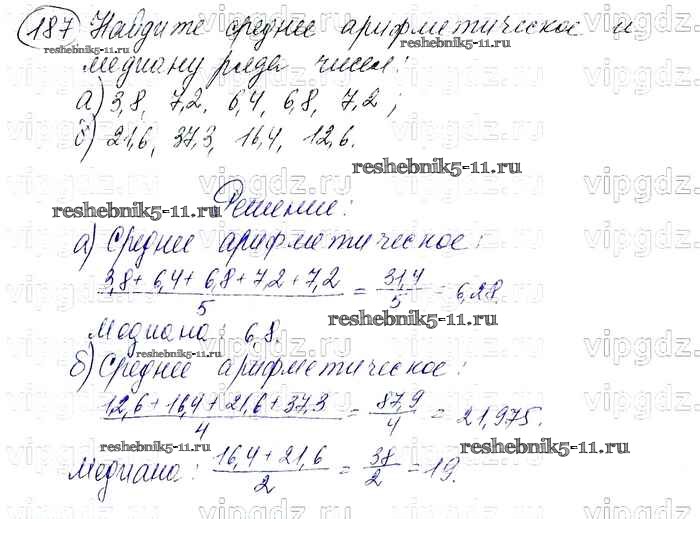 187 Найдите среднее арифметическое и
медиану ряда чисел:
а) 3,8, 7,2, 6,4, 6,8, 7,2;
б) 21,6, 37,3, 16,4, 12,6.
Решение:
а) Среднее арифметическое:
3,8 + 6,4 + 6,8 + 7,2 + 7,2 / 5 = 31,4 / 5 = 6,28.
Медиана: 6,8.
б) Среднее арифметическое:
12,6 + 16,4 + 21,6 + 37,3 / 4 = 87,9 / 4 = 21,975.
Медиана: 16,4 + 21,6 / 2 = 38 / 2 = 19.
reshebnik5-11.ru
vipgdz.ru